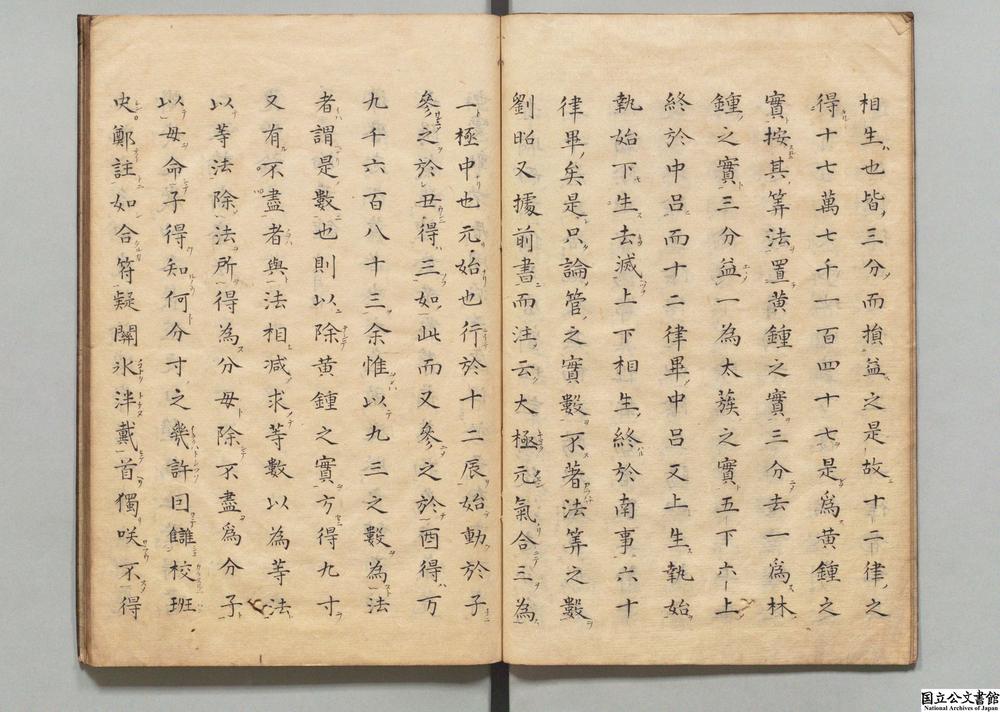 相生也皆三分而損益之是故十二律之
得十七萬七千一百四十七是爲黄鍾之
實按其筭法置黄鍾之實三分去一爲林
鍾之實三分益一為太蔟之實五下六上
終於中呂而十二律畢中呂又上生執始
執始下生去滅上下相生終於南事六十
律畢矣是只論管之實數不著法筭之數
劉昭又據前書而注云大極元氣合三為
一極中也元始也行於十二辰始動於子
參之於丑得三如此而又參之於酉得万
九千六百八十三余惟以九三之數為法
者謂是數也則以除黄鍾之實方得九寸
又有不盡者與法相减求等數以為等法
以等法除法所得為分母除不盡爲分子
以母命子得知何分寸之幾許因讎校班
史鄭註如合符疑關氷泮戴首獨咲不得
国立公文書館
National Archives of Japan